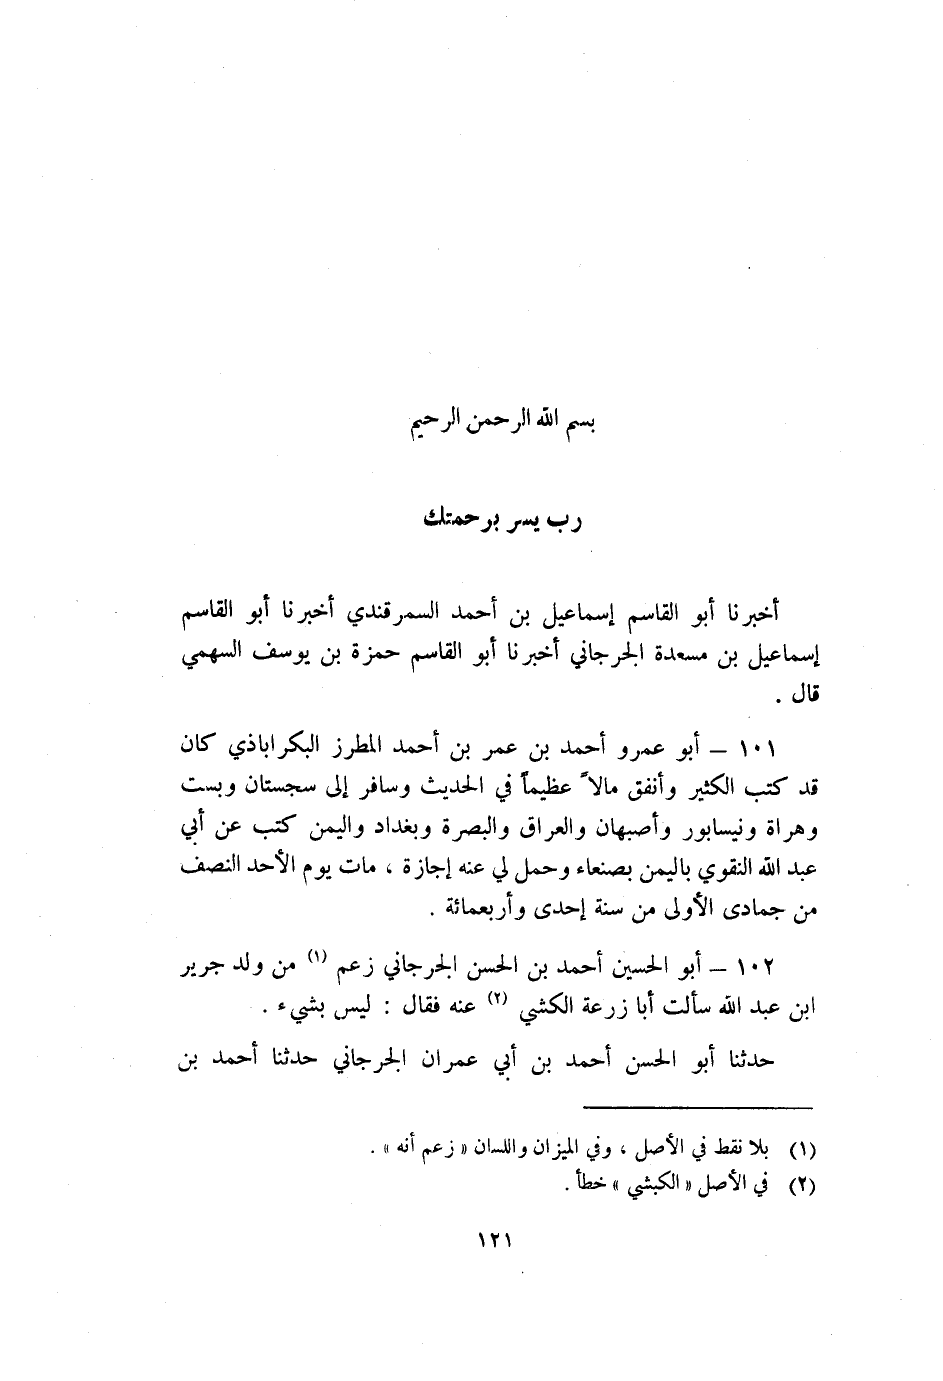 بسم الله الرحمن الرحيم
رب يسر برحمتك
أخبرنا أبو القاسم إسماعيل بن أحمد السمرقندي أخبرنا أبو القاسم
إسماعيل بن مسعدة الجرجاني أخبرنا أبو القاسم حمزة بن يوسف السهمي
قال .
١٠١ ــ أبو عمرو أحمد بن عمر بن أحمد المطرز البكراباذي كان
قد كتب الكثير وأنفق مالاً عظيماً في الحديث وسافر إلى سجستان وبست
وهراة ونيسابور وأصبهان والعراق والبصرة وبغداد واليمن كتب عن أبي
عبد الله النقوي باليمن بصنعاء وحمل لي عنه إجازة ، مات يوم الأحد النصف
من جمادى الأولى من سنة إحدى وأربعمائة .
١٠٢ ــ أبو الحسين أحمد بن الحسن الجرجاني زعم (١) من ولد جرير
ابن عبد الله سألت أبا زرعة الكشي (٢) عنه فقال : ليس بشيء .
حدثنا أبو الحسن أحمد بن أبي عمران الجرجاني حدثنا أحمد بن
(١) بلا نقط في الأصل ، وفي الميزان واللسان « زعم أنه » .
(٢) في الأصل « الكبشي » خطأ .
١٢١